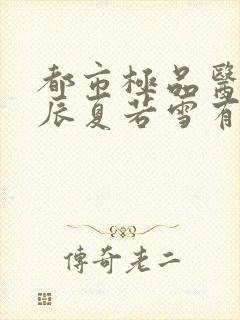 都市極品醫
辰夏若雪有
傳奇老二